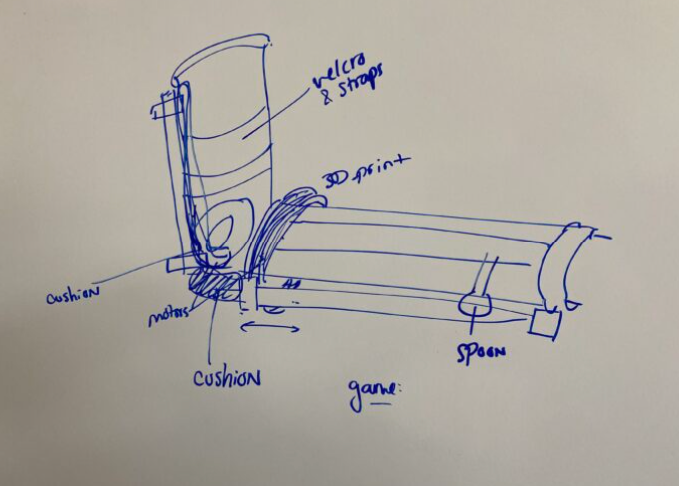 velcro
& straps
3D print
cushion
motors
cushion
spoon
game: